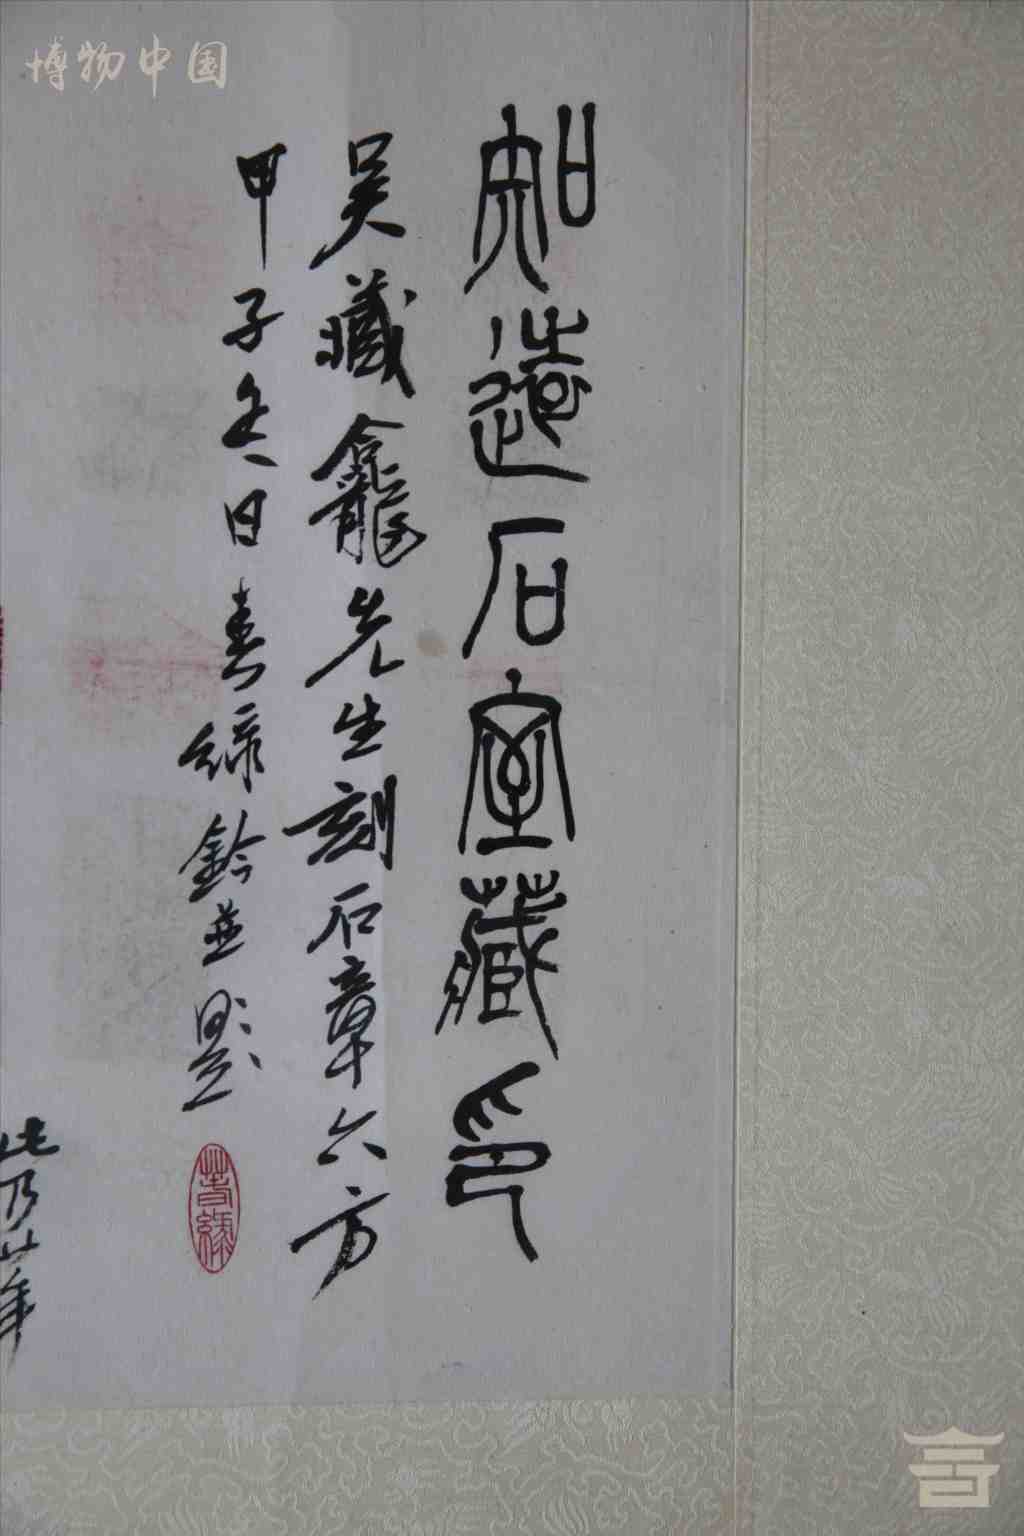 博物中国
知遠石室藏印
吳藏龕先生刻石章六方
甲子冬日春綠鈐並題
春綠
此乃廿年